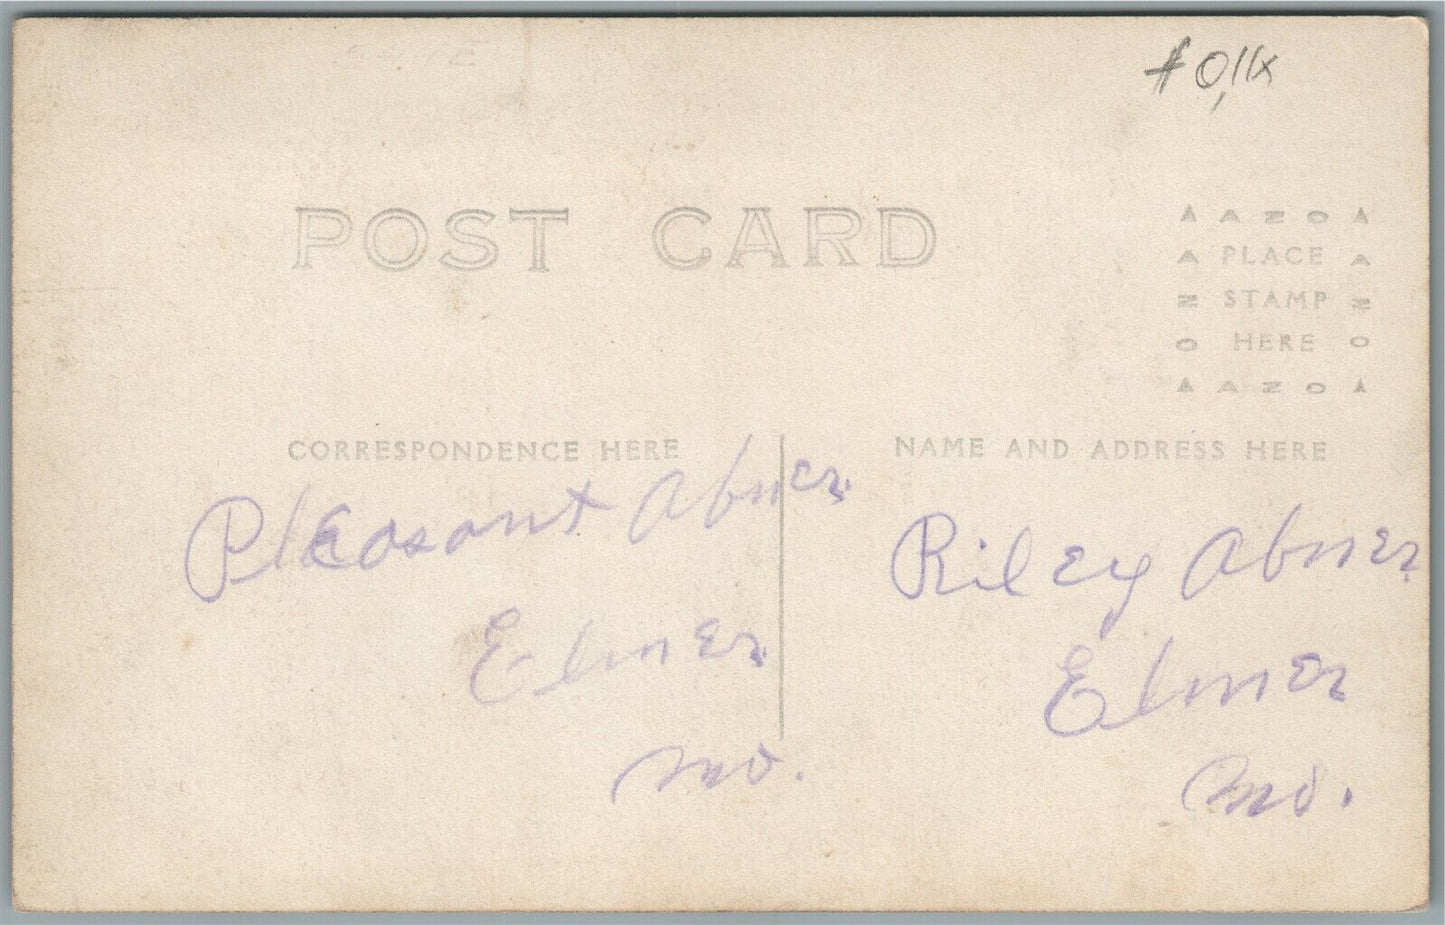 POST CARD
AZO
PLACE
STAMP
HERE
AZO
CORRESPONDENCE HERE
NAME AND ADDRESS HERE
Pleasant Abner.
Elmer
Mo.
Riley Abner
Elmer
Mo.